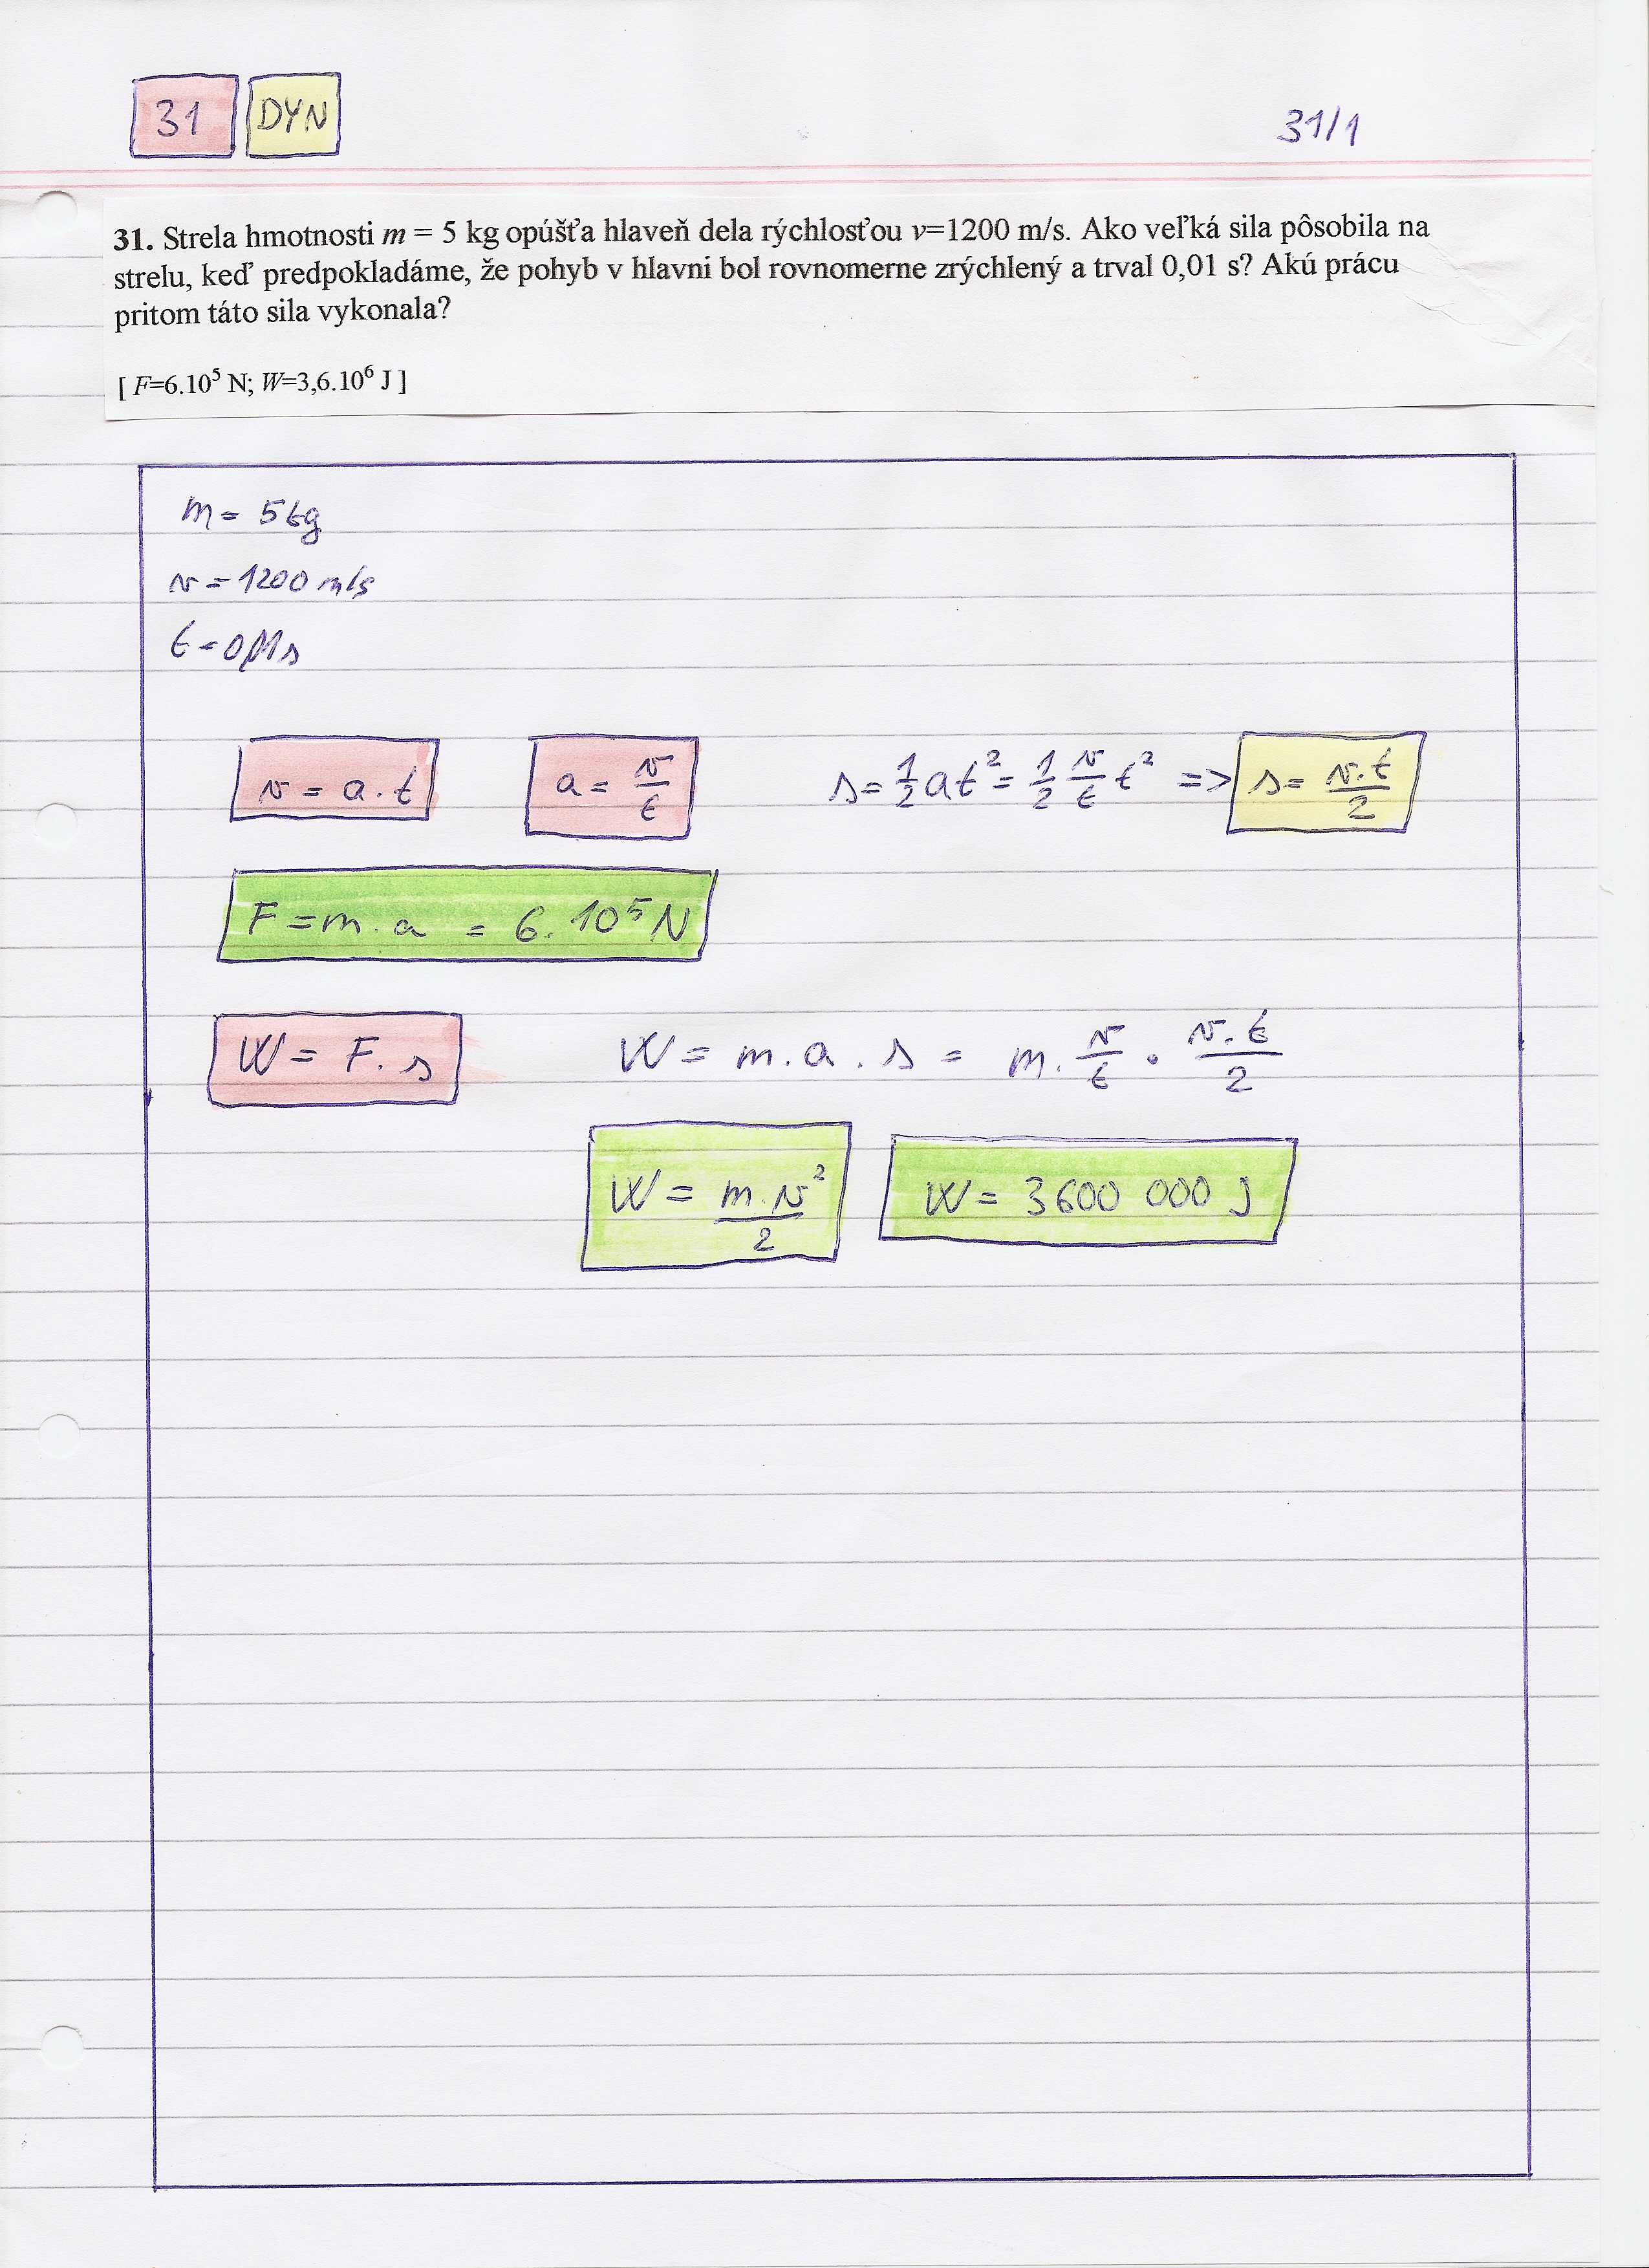 31 DYN 31/1
31. Strela hmotnosti m = 5 kg opúšťa hlaveň dela rýchlosťou v=1200 m/s. Ako veľká sila pôsobila na
strelu, keď predpokladáme, že pohyb v hlavni bol rovnomerne zrýchlený a trval 0,01 s? Akú prácu
pritom táto sila vykonala?
[ F=6.10⁵ N; W=3,6.10⁶ J ]
m = 5 kg
v = 1200 m/s
t = 0,01 s
v = a . t a = v/t s = 1/2 at² = 1/2 v/t t² => s = v.t/2
F = m . a = 6. 10⁵ N
W = F . s W = m . a . s = m . v/t . v.t/2
W = m.v²/2 W = 3600 000 J